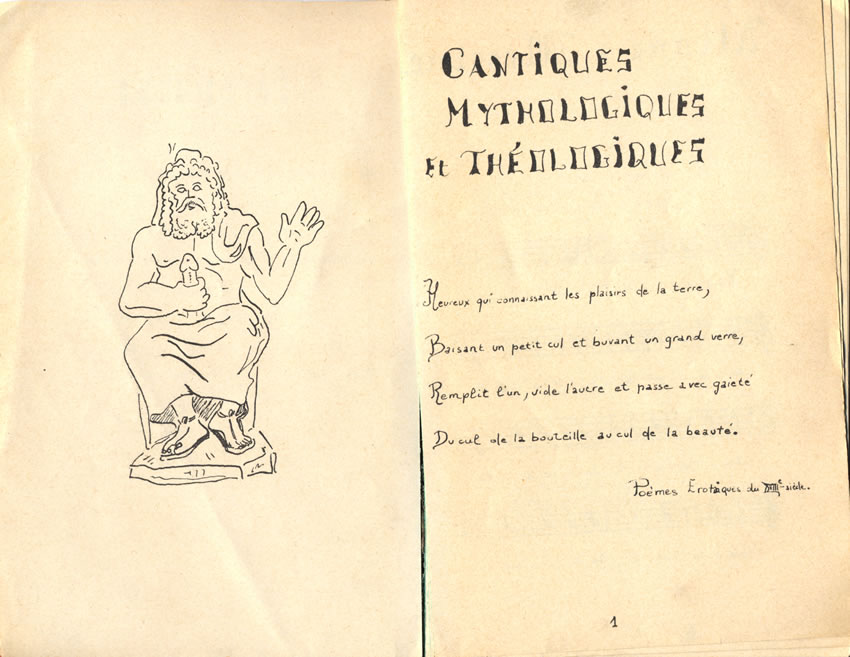 CANTIQUES
MYTHOLOGIQUES
et THÉOLOGIQUES
Heureux qui connaissant les plaisirs de la terre,
Baisant un petit cul et buvant un grand verre,
Remplit l'un, vide l'autre et passe avec gaieté
Du cul de la bouteille au cul de la beauté.
Poèmes Erotiques du XVIIIe siècle.
1